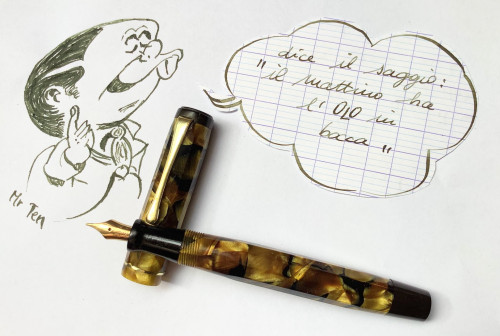 dice il saggio:
"il mattino ha
l'OLO in
baca"
Mr Ten